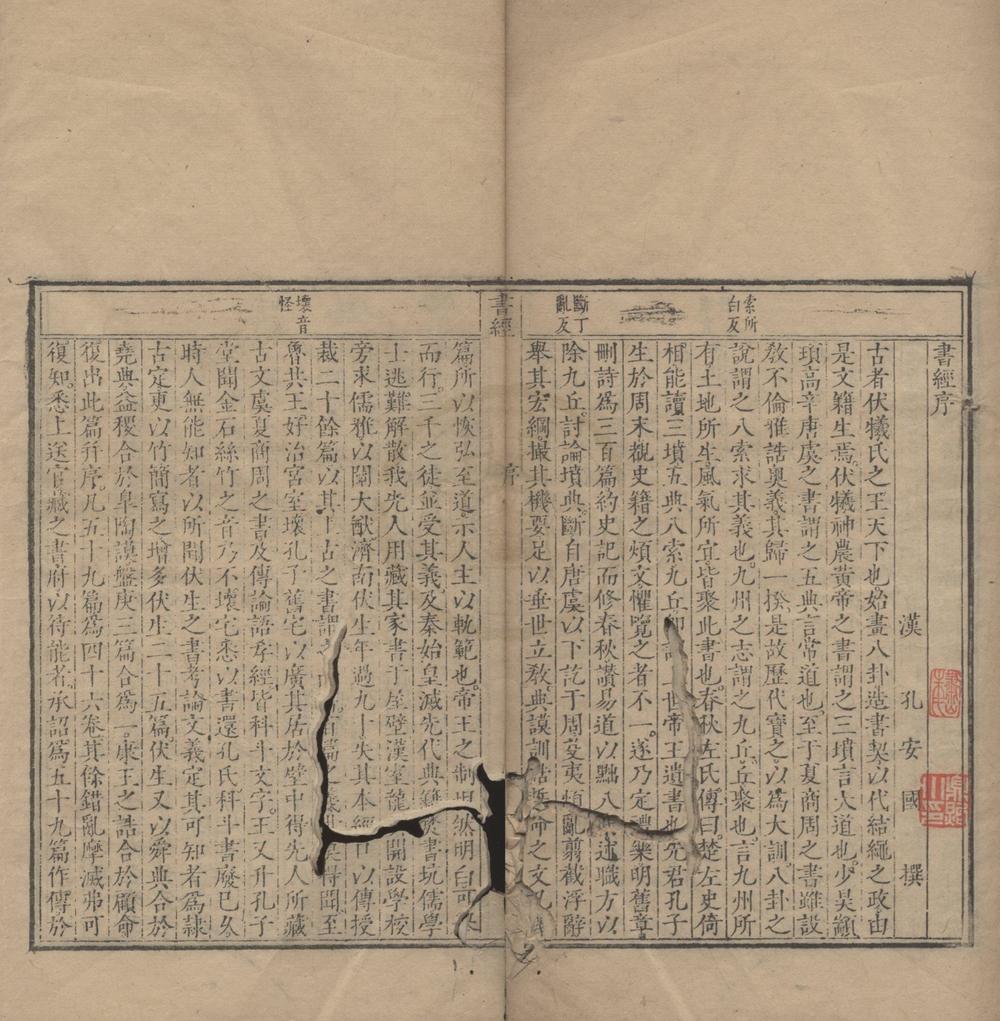 書經序
漢孔安國撰
索所白反
斷丁亂反
古者伏犧氏之王天下也始畫八卦造書契以代結繩之政由
是文籍生焉伏犧神農黃帝之書謂之三墳言大道也少昊顓
頊高辛唐虞之書謂之五典言常道也至于夏商周之書雖設
敎不倫雅誥奧義其歸一揆是故歷代寶之以爲大訓八卦之
說謂之八索求其義也九州之志謂之九丘丘聚也言九州所
有土地所生風氣所宜皆聚此書也春秋左氏傳曰楚左史倚
相能讀三墳五典八索九丘卽上世帝王遺書也先君孔子
生於周末覩史籍之煩文懼覽之者不一遂乃定禮樂明舊章
刪詩爲三百篇約史記而修春秋讚易道以黜八述職方以
除九丘討論墳典斷自唐虞以下訖于周芟夷煩亂翦截浮辭
舉其宏綱撮其機要足以垂世立敎典謨訓誥誓命之文凡
書經
序
壞音怪
篇所以恢弘至道示人主以軌範也帝王之制坦然明白可
而行三千之徒並受其義及秦始皇滅先代典籍焚書坑儒學
士逃難解散我先人用藏其家書于屋壁漢室龍開設學校
旁求儒雅以闡大猷濟南伏生年過九十失其本經口以傳授
裁二十餘篇以其上古之書謂百篇之莫得聞至
魯共王好治宮室壞孔子舊宅以廣其居於壁中得先人所藏
古文虞夏商周之書及傳論語孝經皆科斗文字王又升孔子
堂聞金石絲竹之音乃不壞宅悉以書還孔氏科斗書廢已久
時人無能知者以所聞伏生之書考論文義定其可知者爲隸
古定更以竹簡寫之增多伏生二十五篇伏生又以舜典合於
堯典益稷合於皐陶謨盤庚三篇合爲一康王之誥合於顧命
復出此篇幷序凡五十九篇爲四十六卷其餘錯亂摩滅弗可
復知悉上送官藏之書府以待能者承詔爲五十九篇作傳於